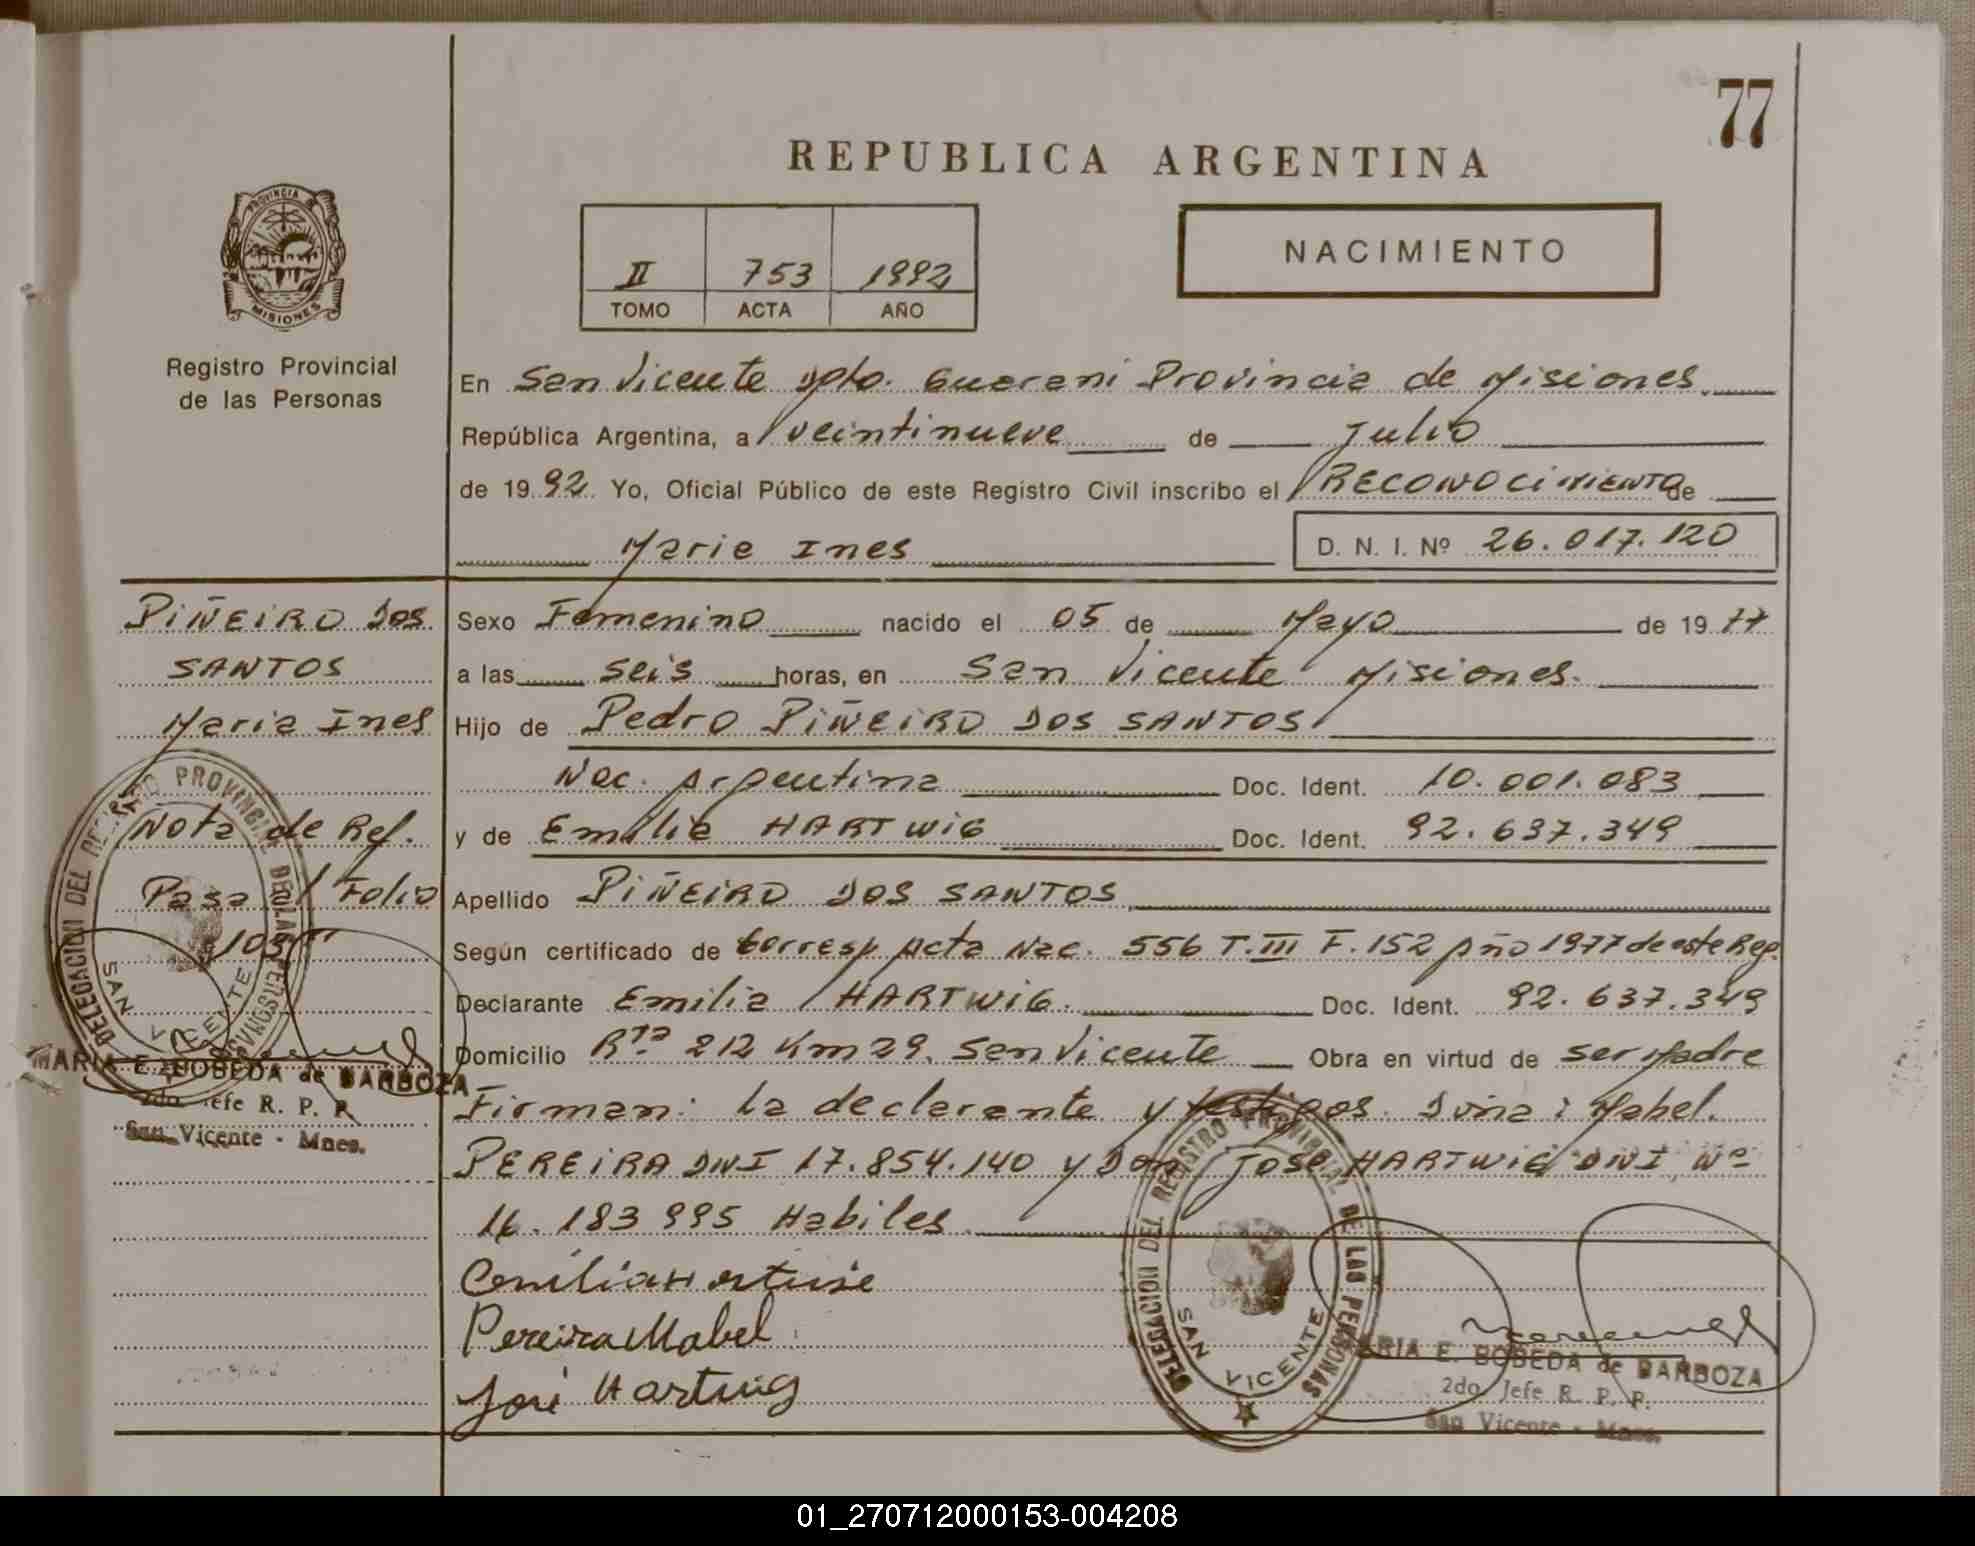 77
REPUBLICA ARGENTINA
PROVINCIA DE
MISIONES
Registro Provincial
de las Personas
II 753 1992
TOMO ACTA AÑO
NACIMIENTO
En San Vicente Dpto. Guarani Provincia de Misiones
República Argentina, a veintinueve de Julio
de 19 92 Yo, Oficial Público de este Registro Civil inscribo el RECONOCIMIENTO de
Maria Ines D. N. I. Nº 26.017.120
PIÑEIRO DOS
SANTOS
Maria Ines
Nota de Ref.
Pasa / Folio
103
Sexo Femenino nacido el 05 de Mayo de 19 77
a las seis horas, en San Vicente Misiones.
Hijo de Pedro PIÑEIRO DOS SANTOS
Nac. Argentina Doc. Ident. 10.001.083
y de Emilia HARTWIG Doc. Ident. 92.637.349
Apellido PIÑEIRO DOS SANTOS
Según certificado de Corresp Acta Nac. 556 T.III F.152 Año 1977 de este Reg.
Declarante Emilia HARTWIG. Doc. Ident. 92.637.349
Domicilio Rta 212 Km 29. San Vicente Obra en virtud de ser Madre
Firman: La declarante y testigos. Doña: Mabel.
PEREIRA DNI 17.854.140 y Don José HARTWIG DNI Nº
16.183 995 Habiles
Pereira Mabel
José Hartwig
DELEGACION DEL REGISTRO PROVINCIAL DE LAS PERSONAS
SAN VICENTE
MARIA E. BOBEDA de BARBOZA
2do Jefe R. P. P.
San Vicente - Mnes.
DELEGACION DEL REGISTRO PROVINCIAL DE LAS PERSONAS
SAN VICENTE
MARIA E. BOBEDA de BARBOZA
2do. Jefe R. P. P.
San Vicente - Mnes.
01_270712000153-004208